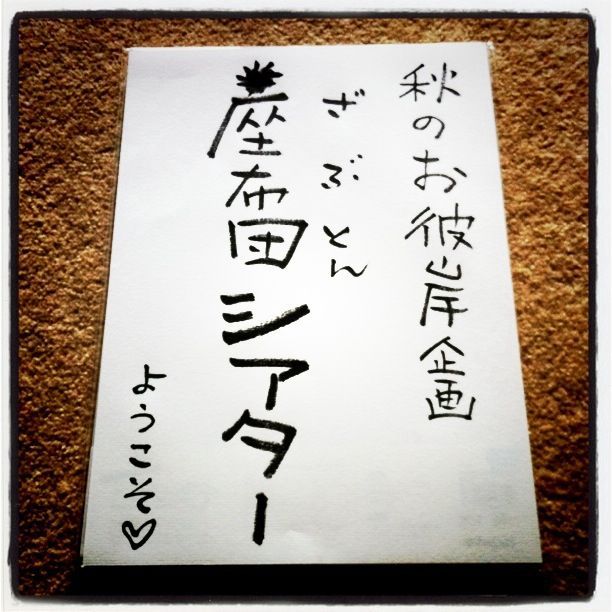 秋のお彼岸企画
ざぶとん
座布団シアター
ようこそ♡